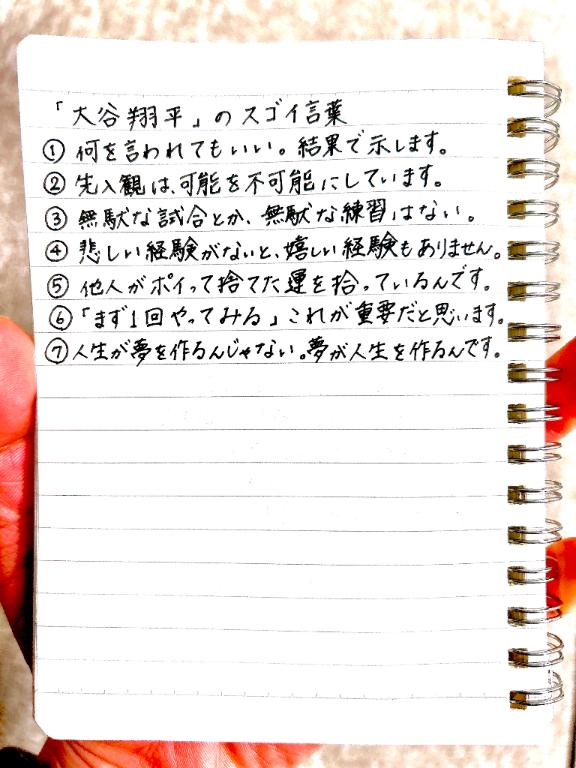 「大谷翔平」のスゴイ言葉
① 何を言われてもいい。結果で示します。
② 先入観は、可能を不可能にしています。
③ 無駄な試合とか、無駄な練習はない。
④ 悲しい経験がないと、嬉しい経験もありません。
⑤ 他人がポイって捨てた運を拾っているんです。
⑥ 「まず1回やってみる」これが重要だと思います。
⑦ 人生が夢を作るんじゃない。夢が人生を作るんです。